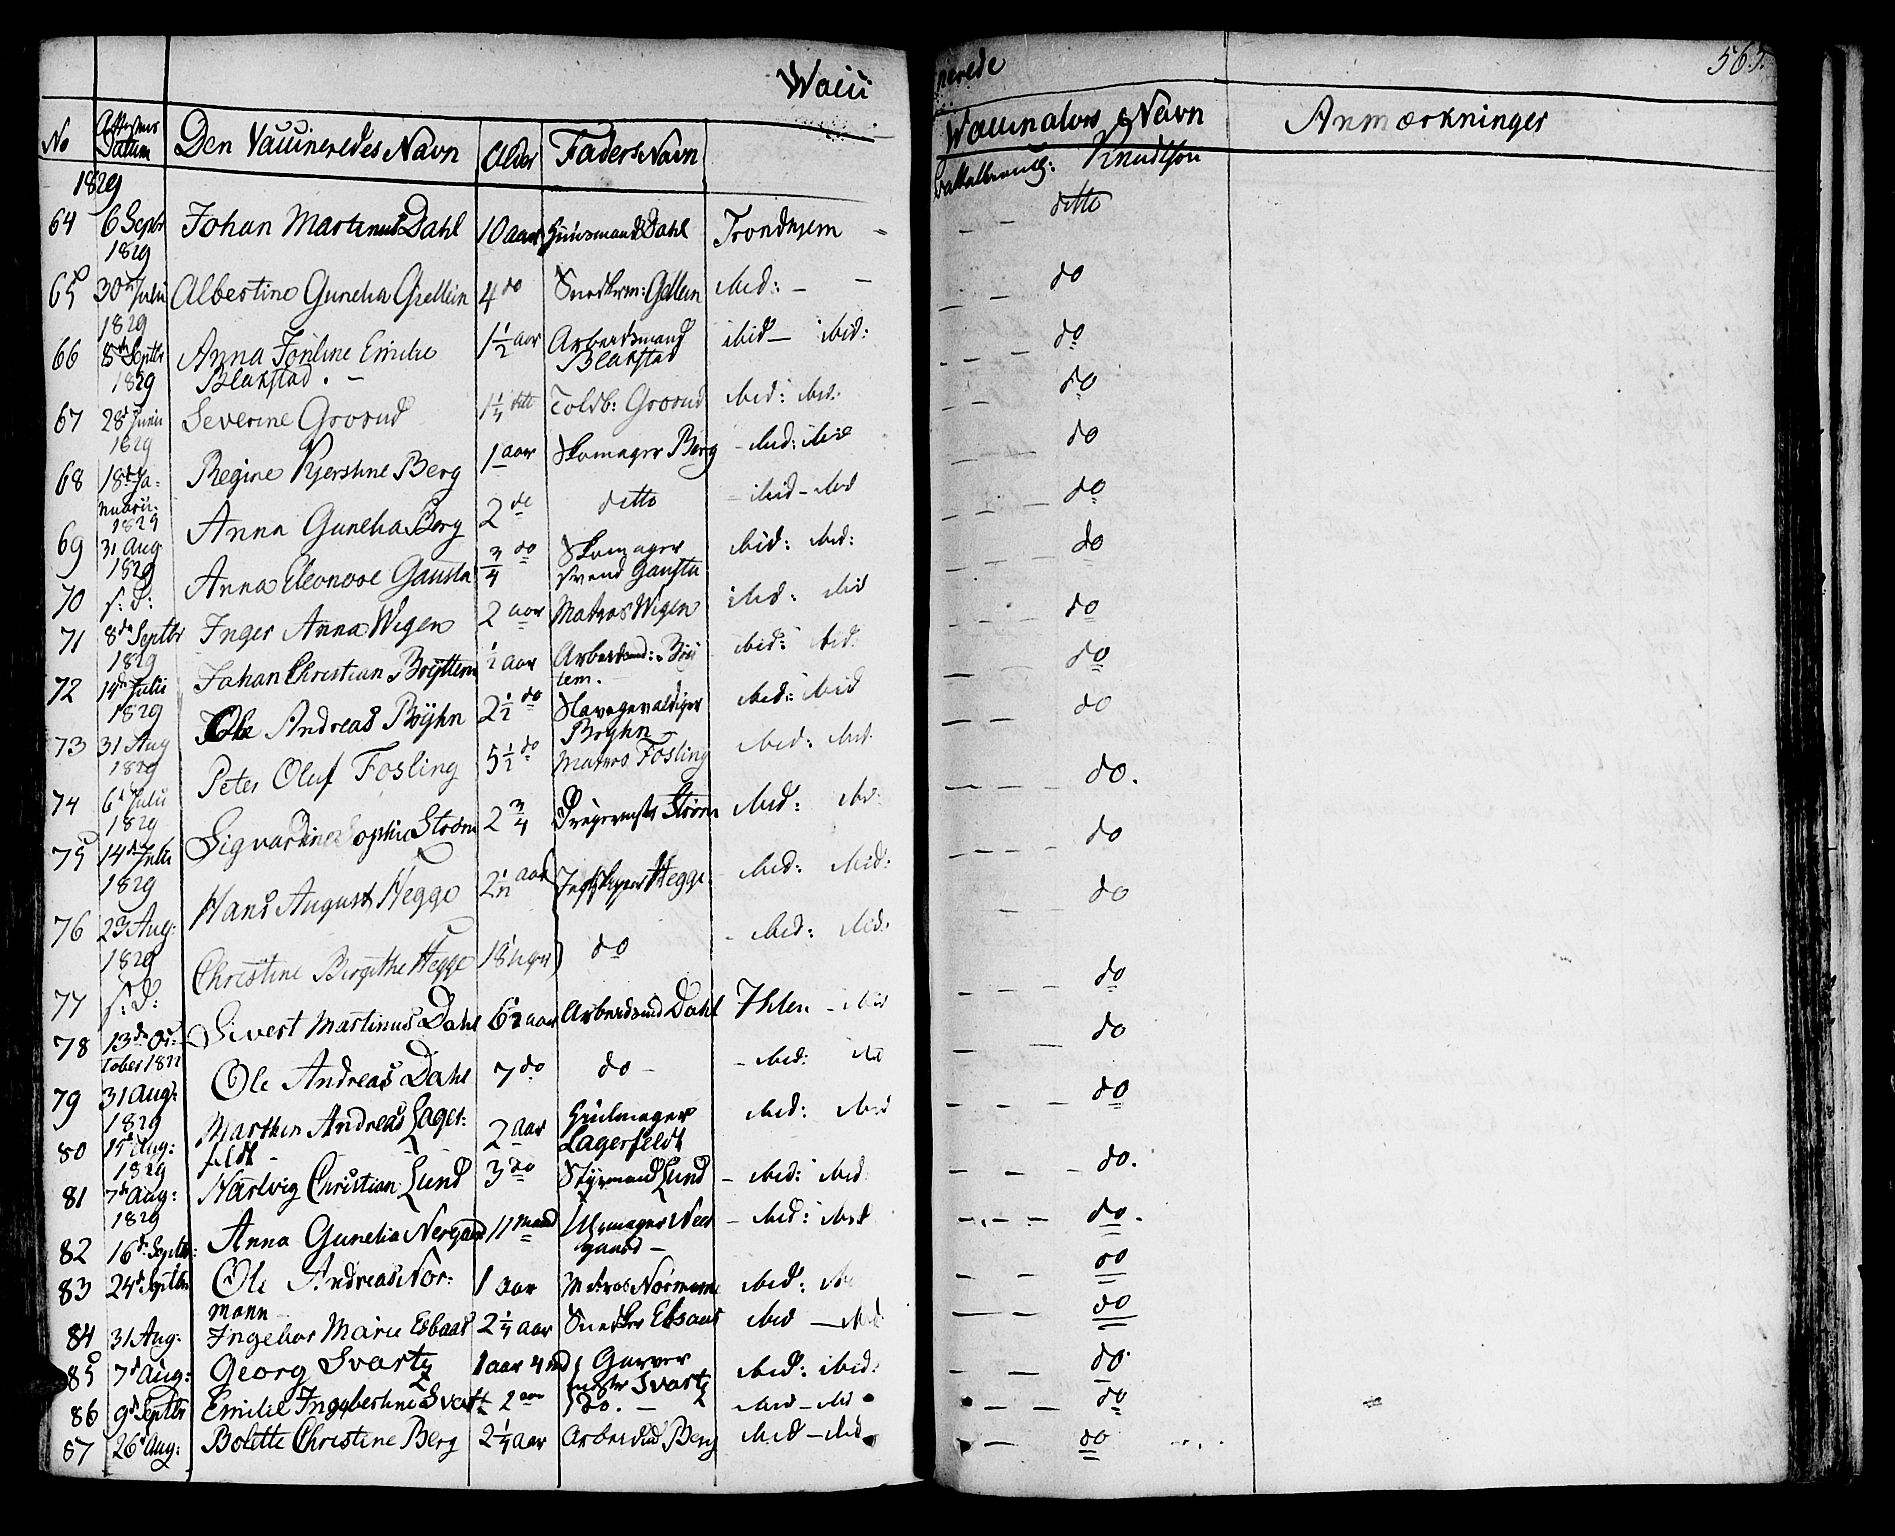 Wacii
No Attestens Datum Den Vaccineredes Navn Alder Faders Navn
1829
64 6 Septr 1829 Johan Martinus Dahl 10 aar Huusmand Dahl Trondhjem
65 30te Julii 1829 Albertine Gunelia Giellein 4 do Snedkerm: Gellein ibid: –
66 8de Septbr 1829 Anna Jonline Emilie Blakstad. – 1 1/2 aar Arbeidsmand Blakstad ibid – ibid:
67 28d Junii 1829 Severine Grorud 1 1/4 ditto Toldb: Grorud ibid: ibid:
68 18de Januarii 1829 Regine Kjerstine Berg 1 aar Skomager Berg – ibid: ibid
Anna Gunelia Berg 2 do ditto – ibid – ibid
69 31 Aug 1829 Anna Eleonore Gausta 3/4 do Skomager svend Gausta ibid: ibid:
70 s: d: Inger Anna Wigen 2 aar Matros Wigen ibid: ibid
71 8de Septbr 1829 Johan Christian Bröttem 1/2 aar Arbeidsmd: Bröttem. ibid: ibid:
72 14de Julii 1829 Ole Andreas Bryhn 2 1/2 do Slavegevaldiger Bryhn ibid: ibid
73 31 Aug 1829 Peter Oluf Fosling 5 1/2 do Matros Fosling ibid: ibid.
74 6d Julii 1829 Sigvardine Sophie Strøm 2 3/4 Strøm ibid: ibid:
75 14de Julii 1829 Hans August Hegge 2 1/2 aar Hegge ibid: ibid:
76 23 Aug: 1829 Christine Birgithe Hegge 18 uger do – ibid: ibid.
77 s: d: Sivert Martinus Dahl 6 1/2 aar Arbeidsmd Dahl Ihlen – ibid
78 13de October 1822 Ole Andreas Dahl 7 do do – – ibid: ibid
79 31 Aug: 1829 Marthin Andreas Lagerfeldt – 2 aar Hiulmager Lagerfeldt ibid: ibid
80 15d Aug: 1829 Hartvig Christian Lund 3 do Styrmand Lund – ibid: ibid
81 7de Aug: 1829 Anna Gunelia Nergaard 11 maand Uhrmager Neergaard – – ibid: ibid
82 16d Septbr: Ole Andreas Normann 1 aar Matros Normann ibid: ibid
83 24d Septbr
84 31 Aug: Ingebor Marie Esbaas 2 1/4 aar Snedker Ebsaas ibid – ibid
85 7d Aug: Georg Svartz 1 aar 4 md Garver mester Svartz ibid: ibid:
86 9d Septbr Emilie Ingebertine Svartz 2 aar do. – ibid – ibid
87 26d Aug: Bolette Christine Berg 2 1/4 aar Arbeidsmd Berg ibid – ibid
nerede 565.
Waccinators Navn Anmærkninger
Knudtson
– ditto
– – do
– – – do
– – do
– – – do
– – – do
– – – do
– – – do
– do
– – – do
– – – – do.
– – – – do
– – do
– – – do
– – do
– – – do
– – – do.
– – – – do.
– – do
– – do
– – do
– – – do
– do